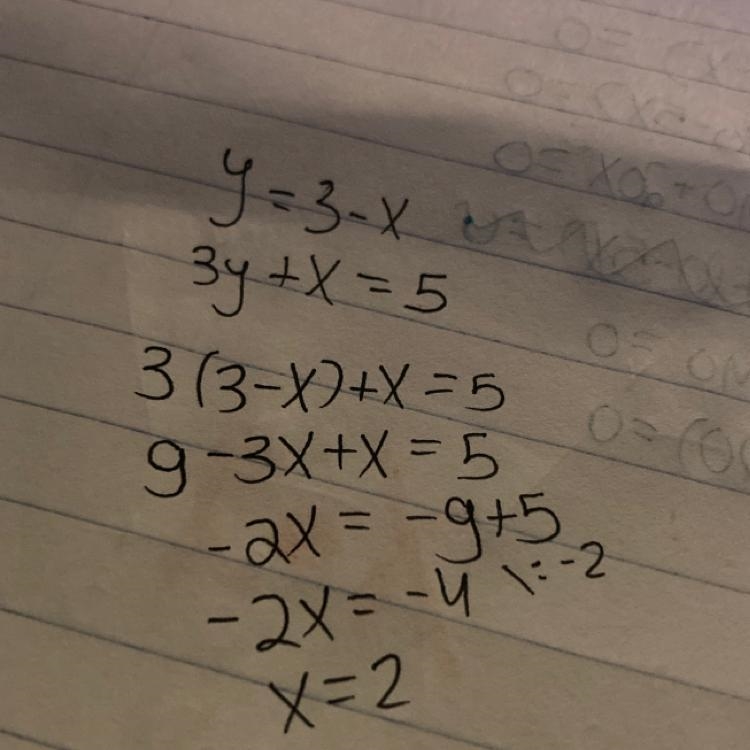 y = 3 - x
3y + x = 5
3(3-x)+x = 5
9 -3x+x = 5
-2x = -9+5
-2x = -4 \: -2
x = 2